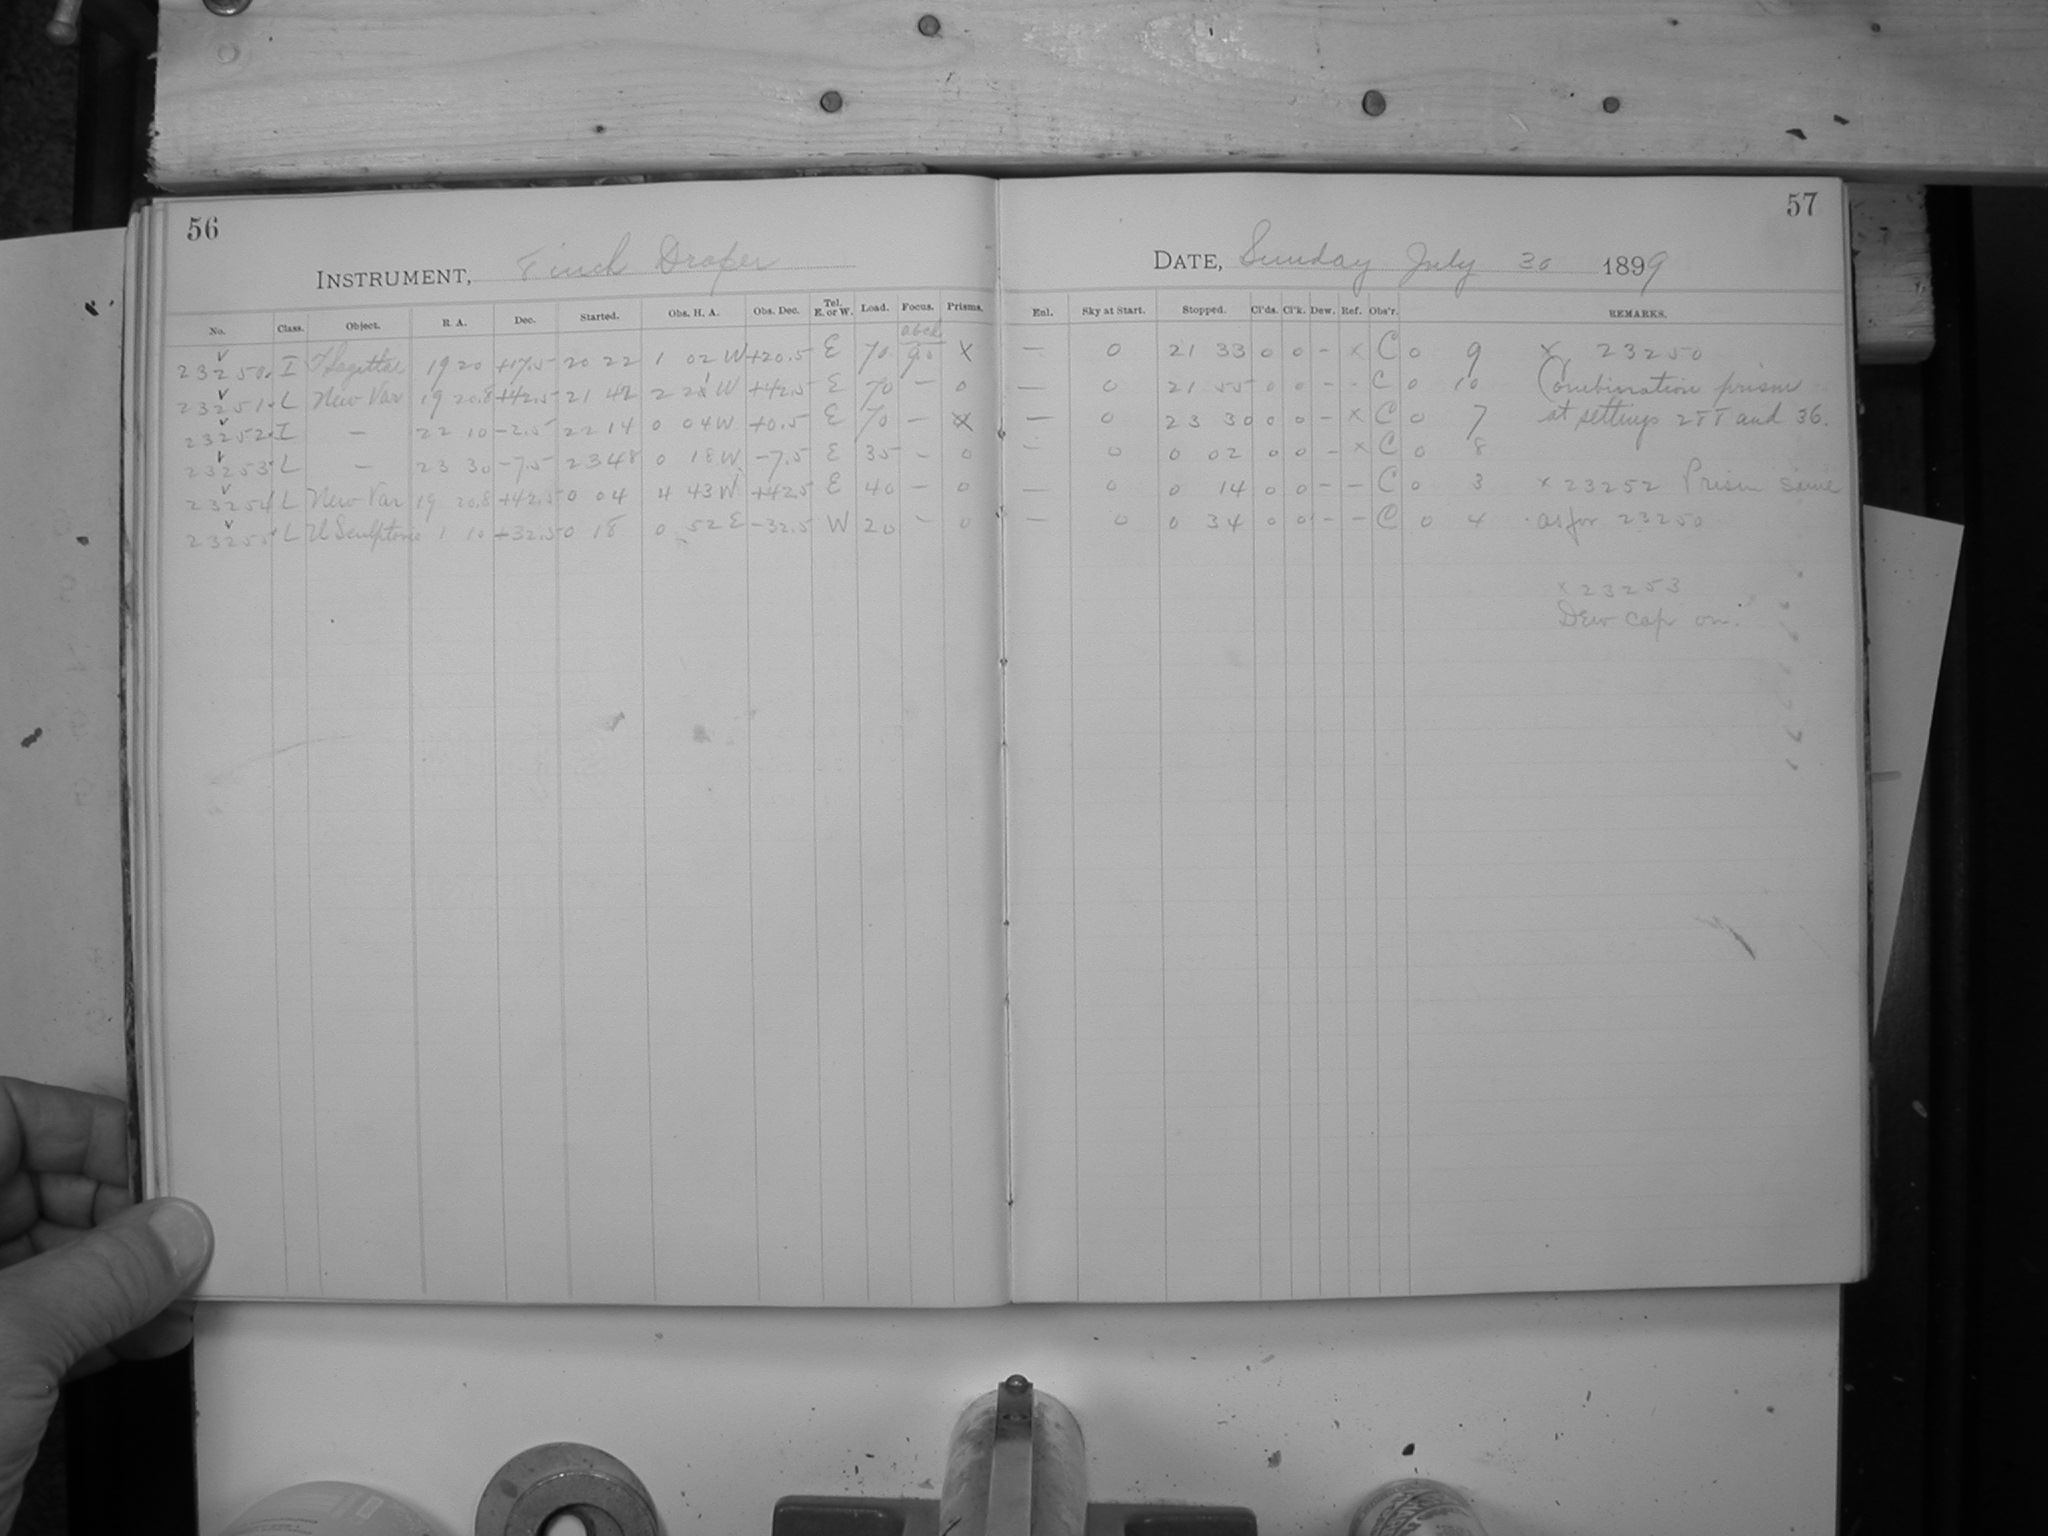 56
57
INSTRUMENT, 8 inch Draper
DATE, Sunday July 30 1899
No. Class. Object. R. A. Dec. Started. Obs. H. A. Obs. Dec. Tel. E. or W. Load. Focus. Prisms. Enl. Sky at Start. Stopped. Cl'ds. Cl'k. Dew. Ref. Obs'r. REMARKS.
23250 I Sagittae 19 20 +17.5 20 22 1 02 W +20.5 E 70 90 x — 0 21 33 0 0 - x C 0 9 x 23250
23251 L New Var 19 20.8 +42.5 21 42 2 21 W +42.5 E 70 - 0 — 0 21 55 0 0 - - C 0 10 Combination prism
23252 I — 22 10 -2.5 22 14 0 04 W +0.5 E 70 - x — 0 23 30 0 0 - x C 0 7 at settings and 36.
23253 L — 23 30 -7.5 23 48 0 18 W -7.5 E 35 - 0 — 0 0 02 0 0 - x C 0 8
23254 L New Var 19 20.8 +42.5 0 04 4 43 W +42.5 E 40 - 0 — 0 0 14 0 0 - - C 0 3 x 23252 Prism same
23255 L U Sculptoris 1 10 +32.5 0 18 0 52 E -32.5 W 20 - 0 — 0 0 34 0 0 - - C 0 4 as for 23250
x 23253
Dew cap on.